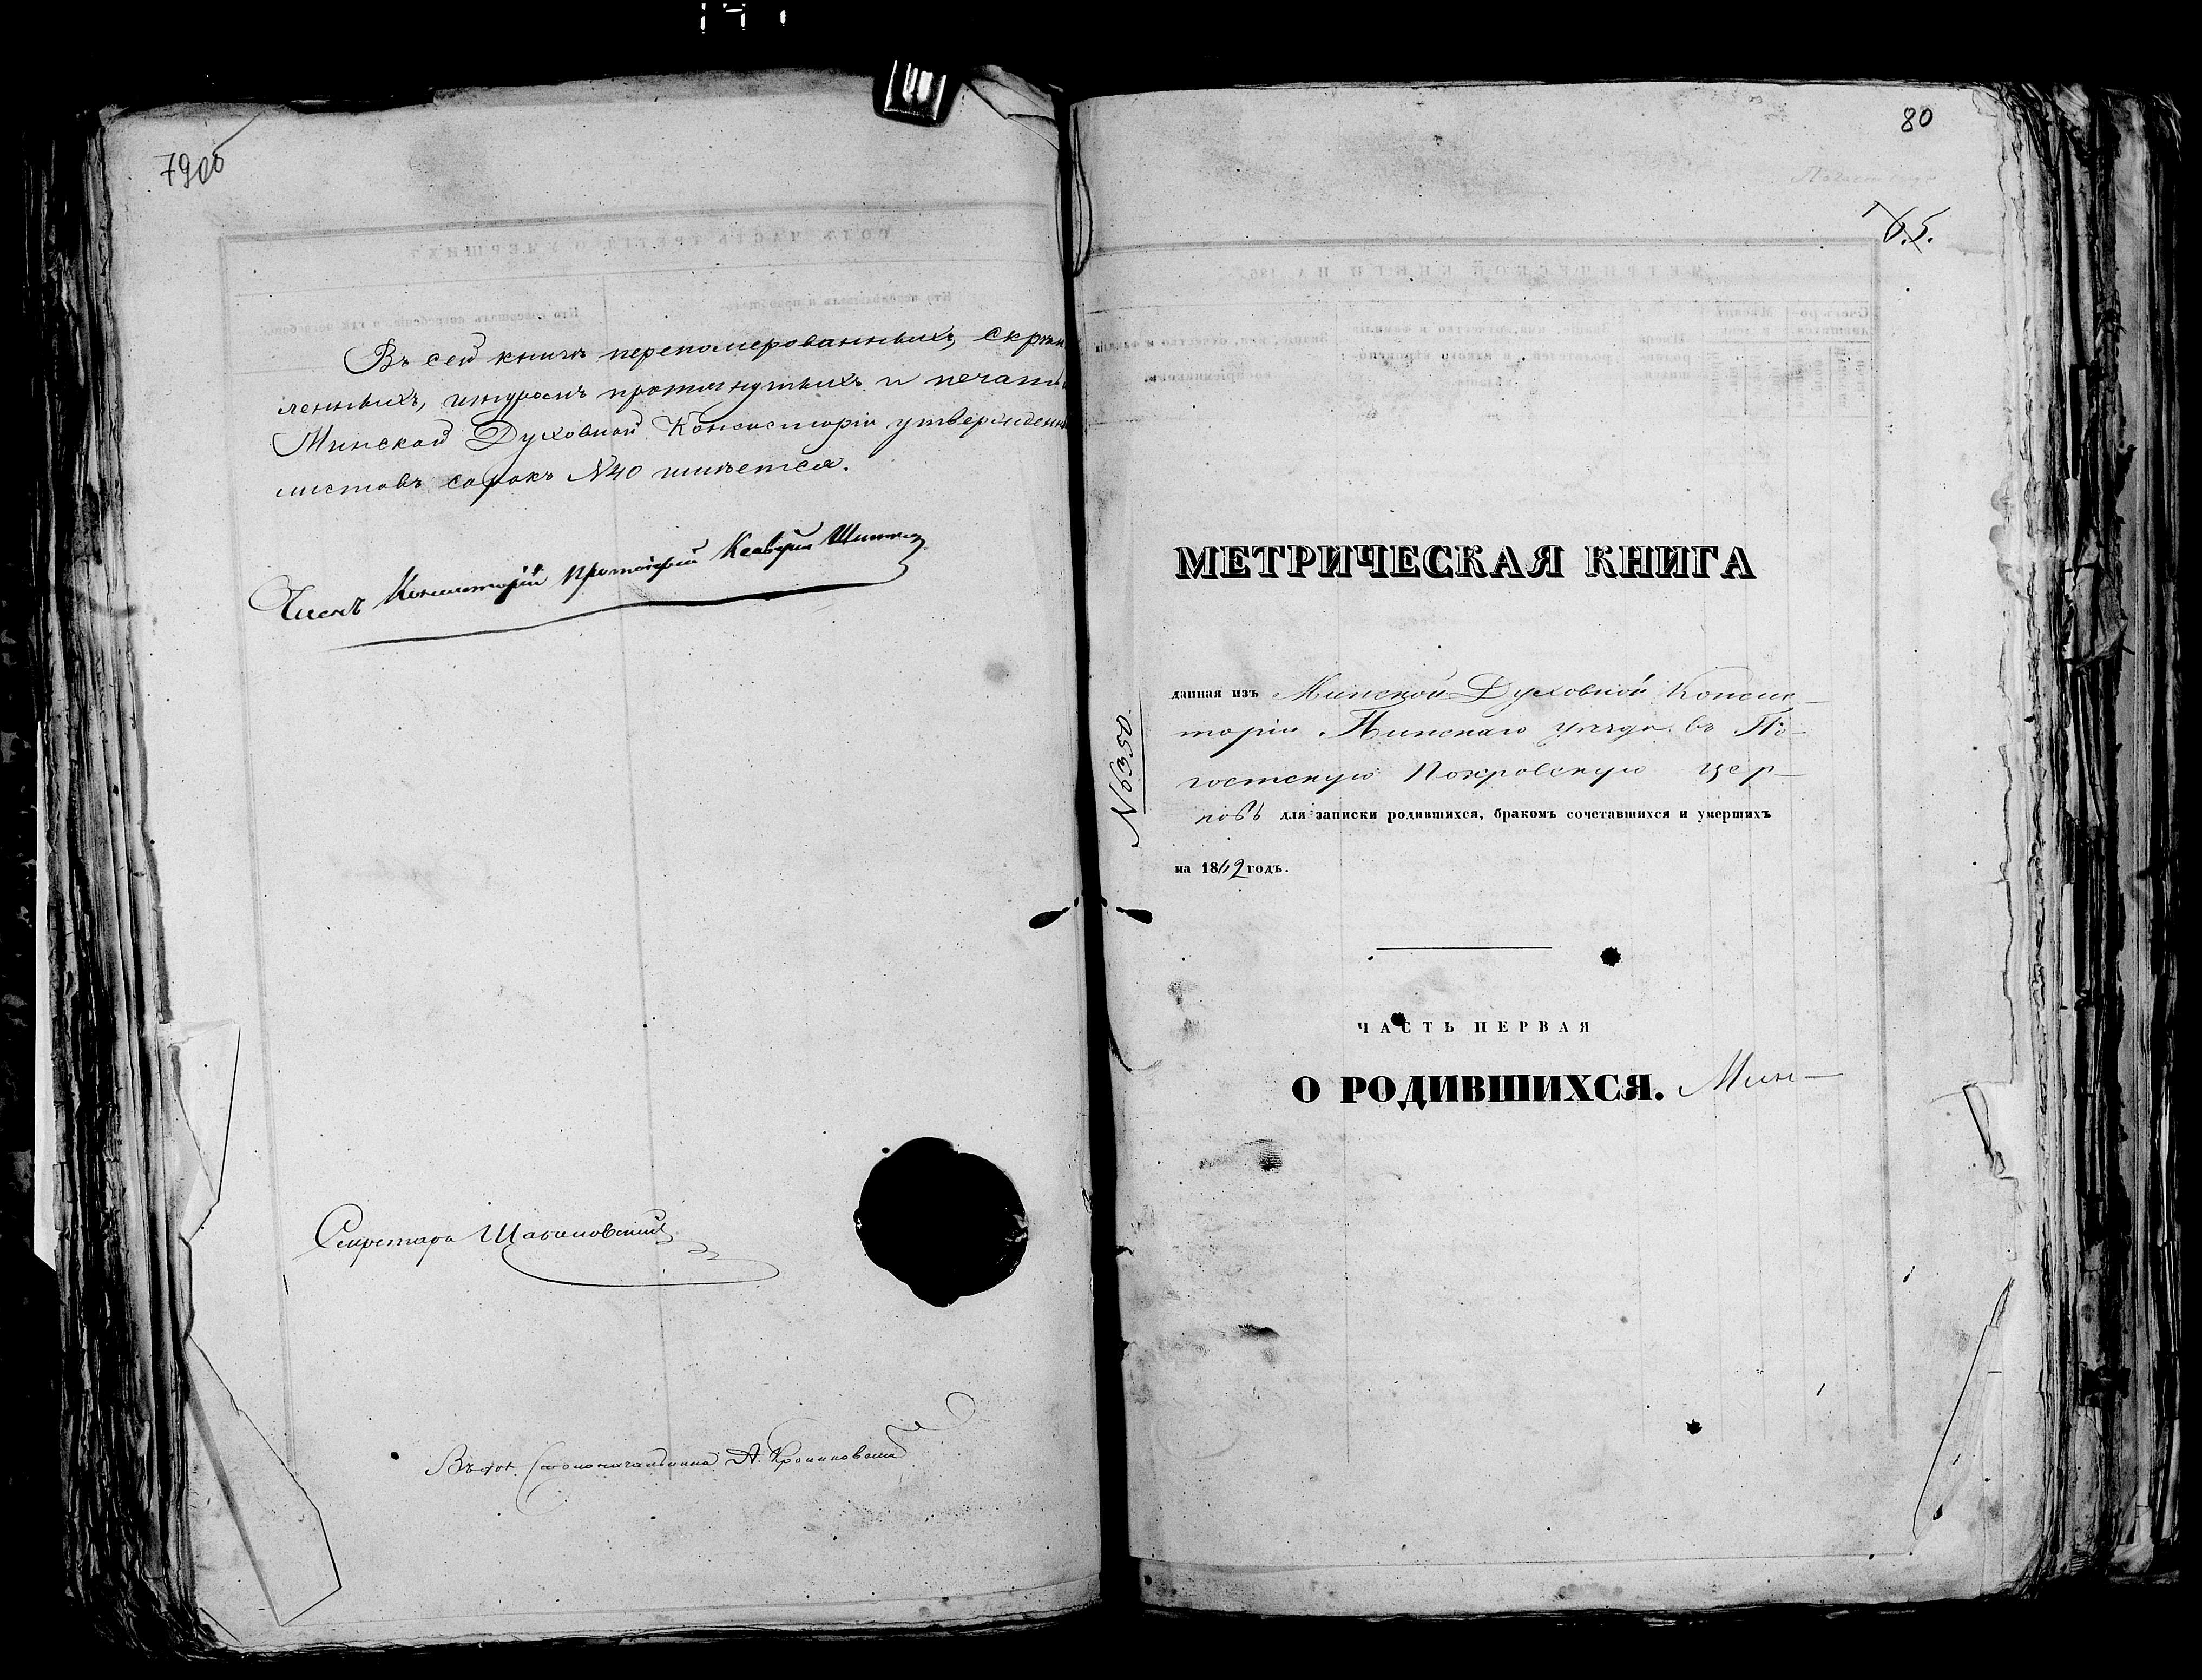 79об
Въ сей книгѣ перенумерованныхъ, скрѣп
ленныхъ, шнуромъ протянутыхъ и печатью
Минской Духовной Консисторіи утвержденн
листовъ сорокъ №40 имѣется.
Членъ Консисторіи Протоіерей
Секретарь
Столоначальника А.
80
65.
МЕТРИЧЕСКАЯ КНИГА
данная изъ Минской Духовной Консис-
торіи Пинскаго уѣзда въ По-
гостскую Покровскую цер-
ковь для записки родившихся, бракомъ сочетавшихся и умершихъ
на 1862 годъ.
№6350.
ЧАСТЬ ПЕРВАЯ
О РОДИВШИХСЯ. Мин-